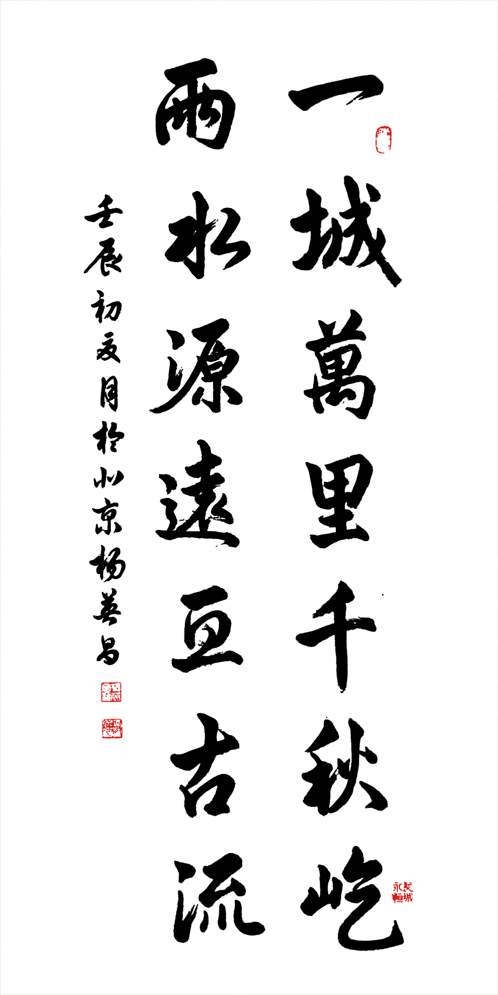 一城萬里千秋屹
兩水源遠亘古流
壬辰初夏月於北京楊英昌
長城永恒